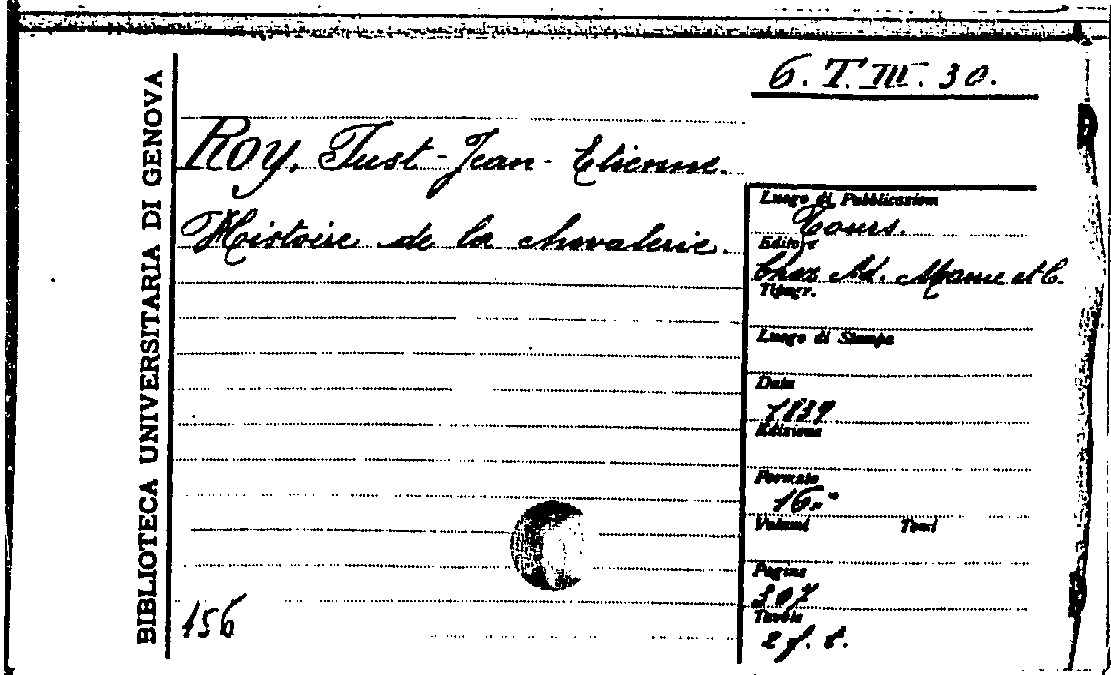 BIBLIOTECA UNIVERSITARIA DI GENOVA
6. T. III. 30.
Roy, Just-Jean-Etienne.
Histoire de la chevalerie.
156
Luogo di Pubblicazione
Tours.
Editore
Chez Ad. Mame et C.
Tipogr.
Luogo di Stampa
Data
1839
Edizione
Formato
16.°
Volumi Tomi
Pagine
307
Tavole
2 f. t.